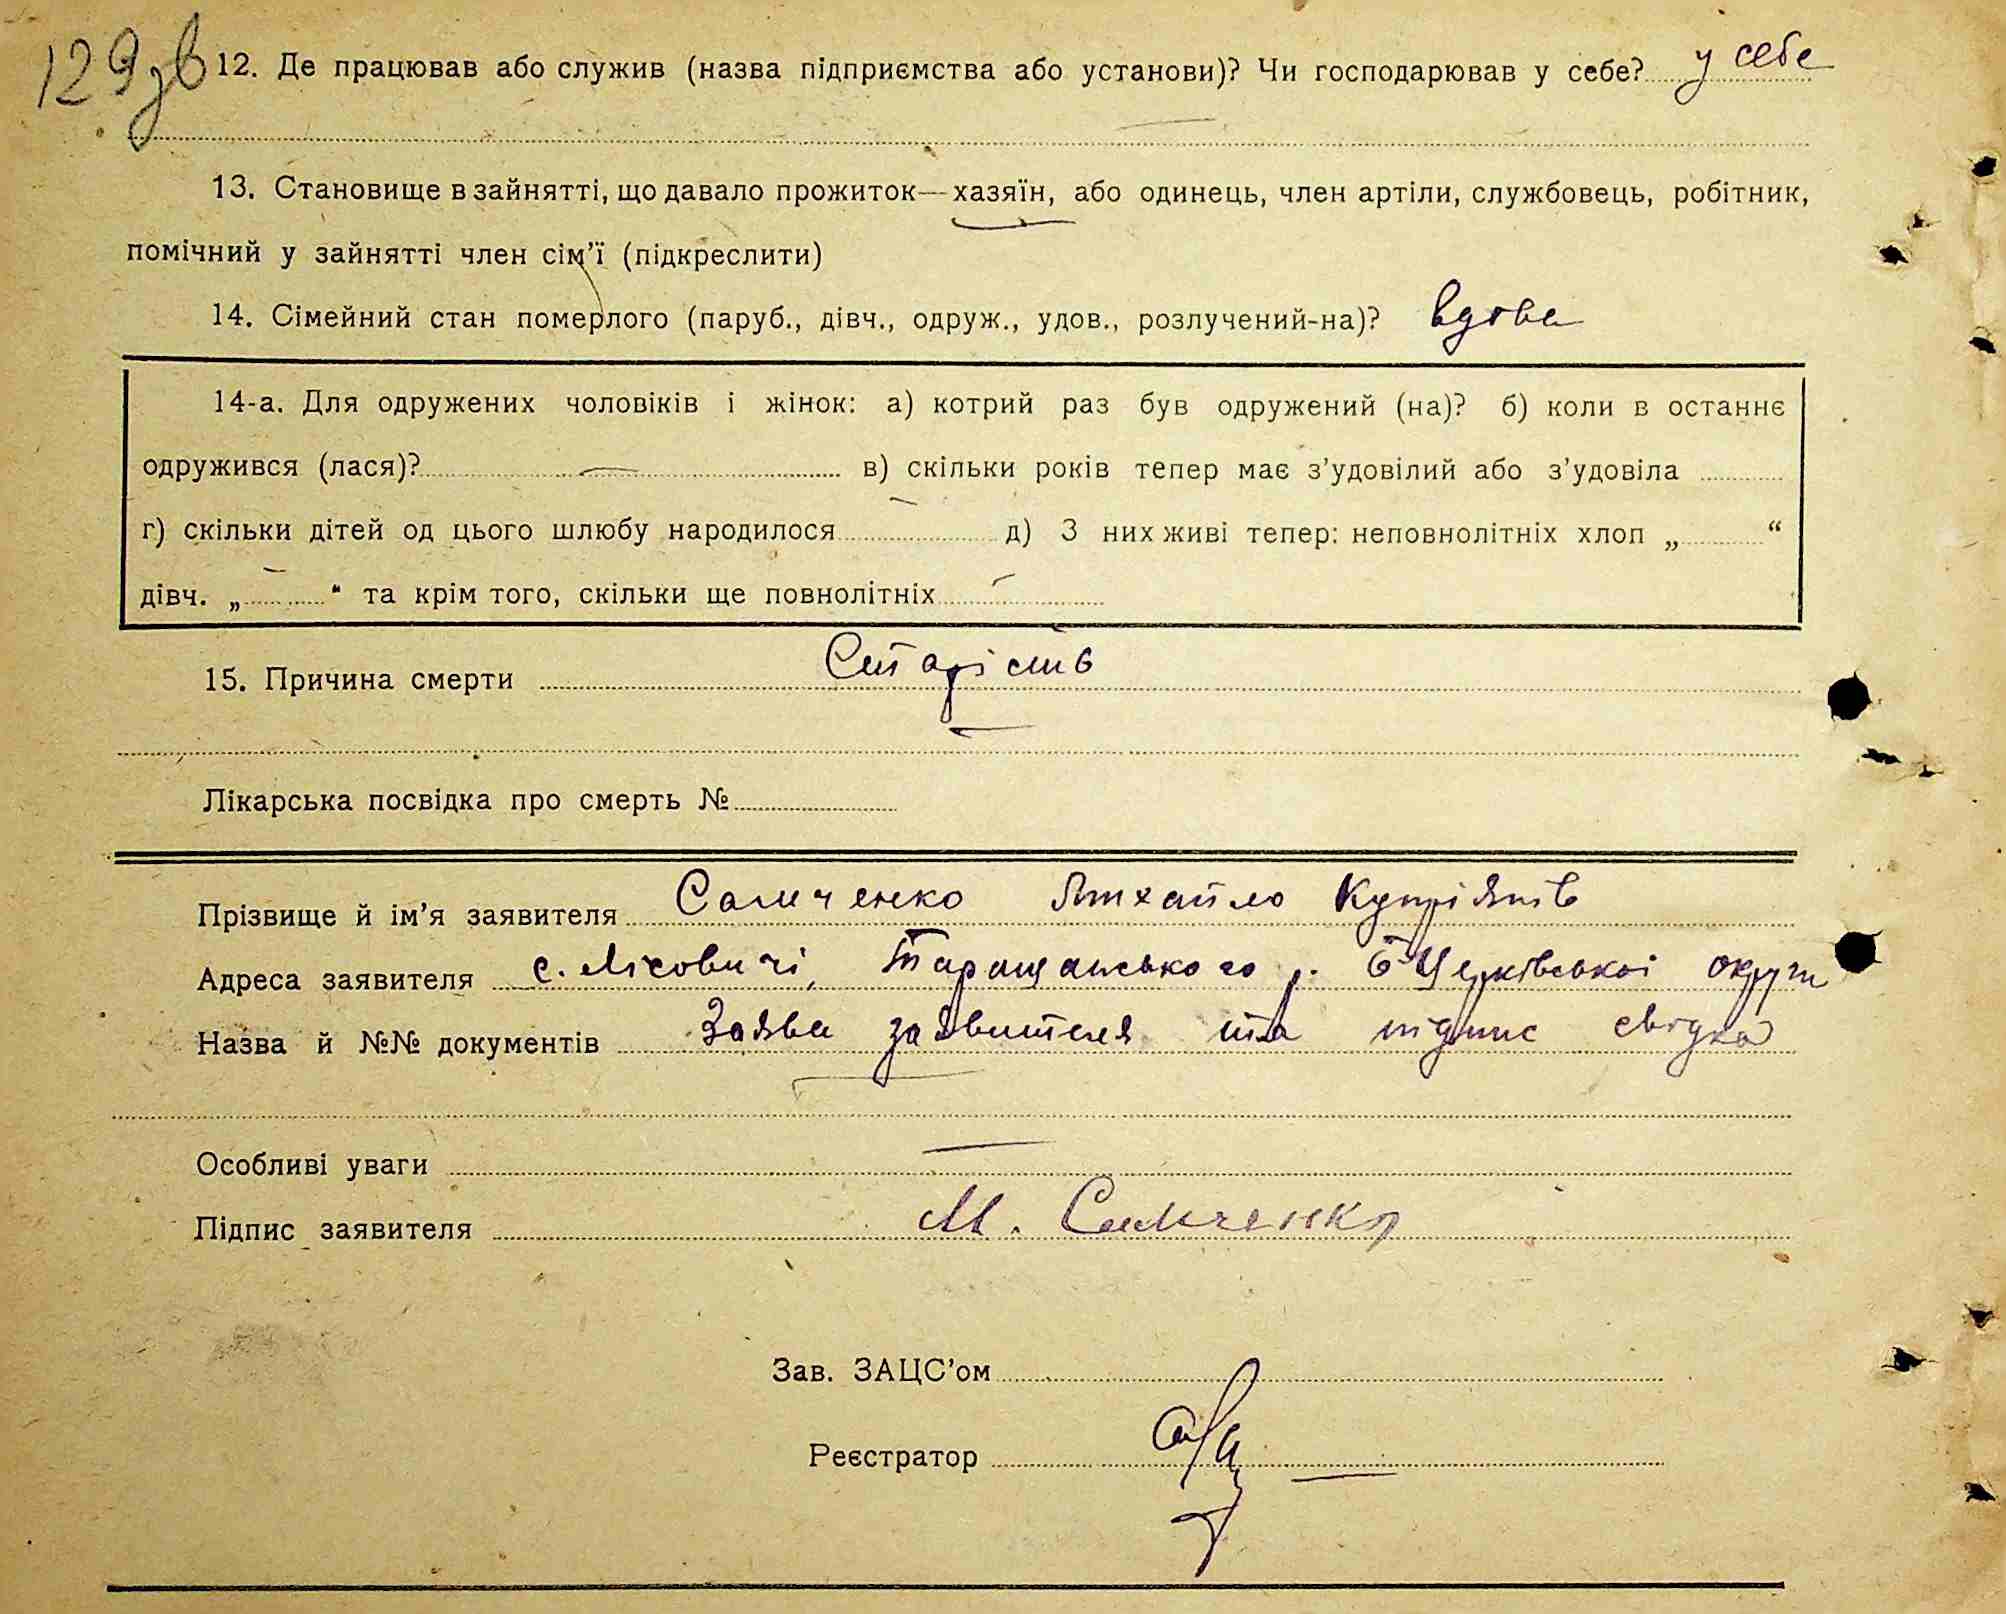 129зв
12. Де працював або служив (назва підприємства або установи)? Чи господарював у себе? у себе
13. Становище в зайнятті, що давало прожиток—хазяїн, або одинець, член артіли, службовець, робітник,
помічний у зайнятті член сім’ї (підкреслити)
14. Сімейний стан померлого (паруб., дівч., одруж., удов., розлучений-на)? вдова
14-а. Для одружених чоловіків і жінок: а) котрий раз був одружений (на)? б) коли в останнє
одружився (лася)? в) скільки років тепер має з’удовілий або з’удовіла
г) скільки дітей од цього шлюбу народилося д) З них живі тепер: неповнолітніх хлоп „ “
дівч. „ “ та крім того, скільки ще повнолітніх
15. Причина смерти Старість
Лікарська посвідка про смерть №
Прізвище й ім’я заявителя Самченко Михайло Купріянів
Адреса заявителя с. Лісовичі, Таращанського р. БЦерківської округи
Назва й №№ документів Заява заявителя та підпис свідка
Особливі уваги
Підпис заявителя М. Самченко
Зав. ЗАЦС’ом
Реєстратор